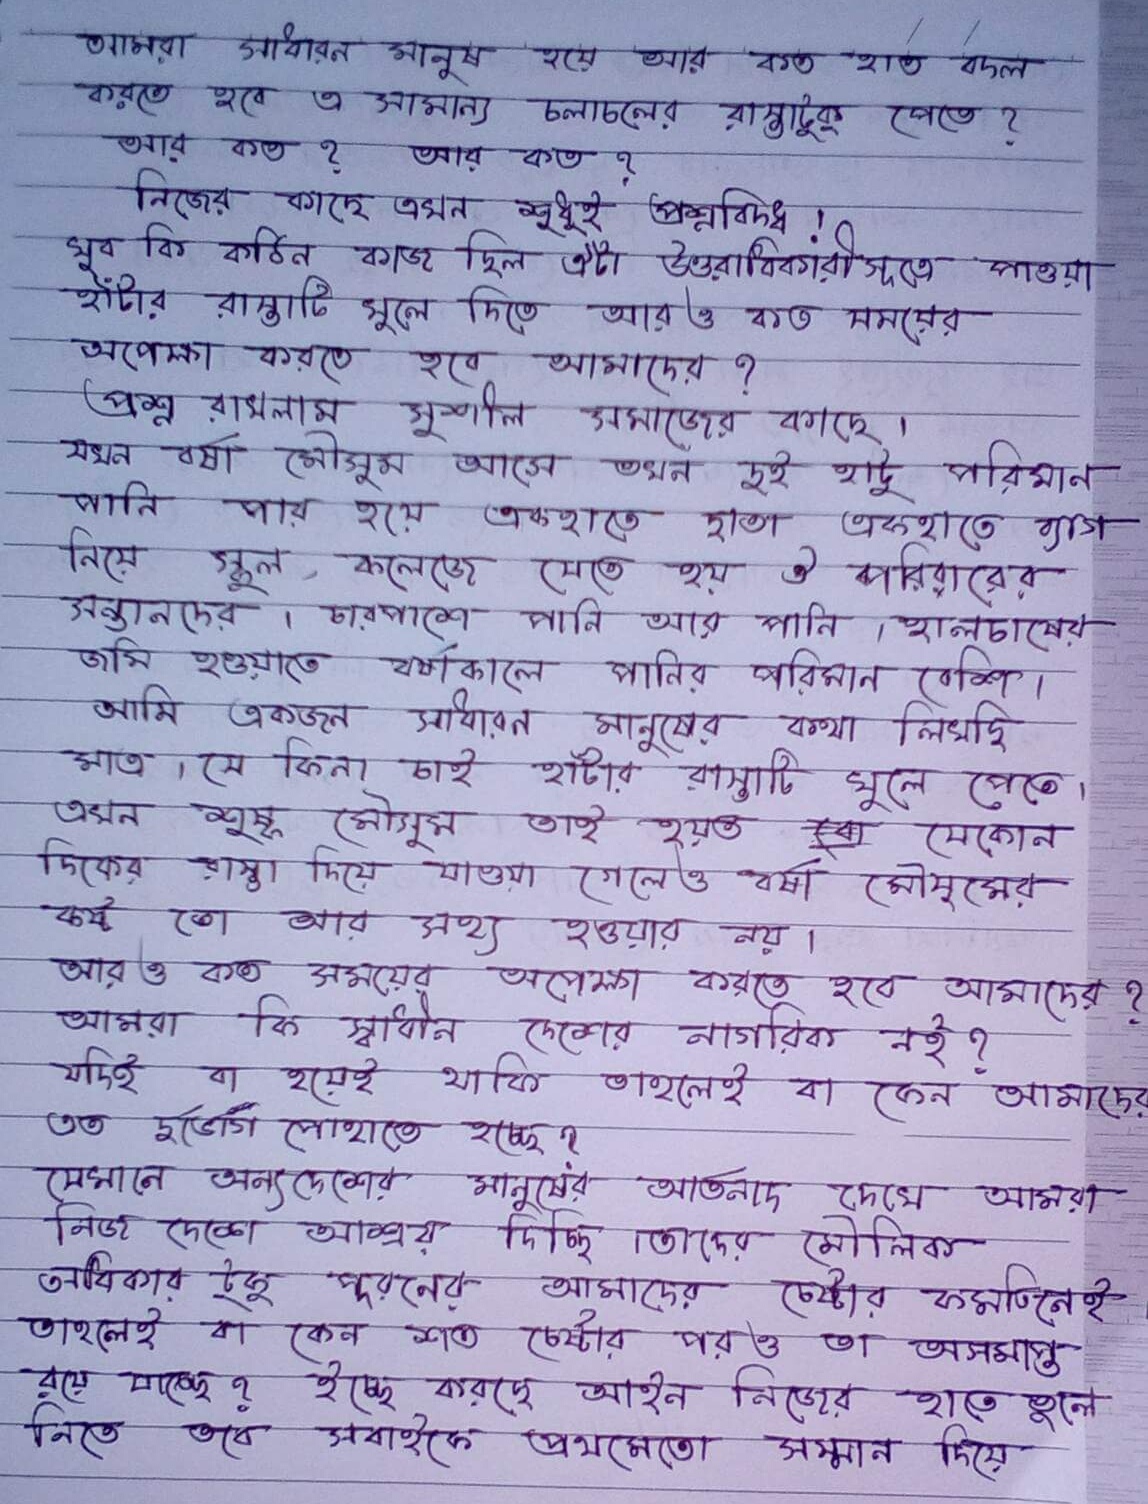 আমরা সাধারন মানুষ হয়ে আর কত হাত বদল
করতে হবে এ সামান্য চলাচলের রাস্তাটুকু পেতে ?
আর কত ? আর কত ?
নিজের কাছে এখন শুধুই প্রশ্নবিদ্ধ !
খুব কি কঠিন কাজ ছিল ঐটা উত্তরাধিকারীসূত্রে পাওয়া
হাঁটার রাস্তাটি খুলে দিতে আরও কত সময়ের
অপেক্ষা করতে হবে আমাদের ?
প্রশ্ন রাখলাম সুশীল সমাজের কাছে ।
যখন বর্ষা মৌসুম আসে তখন দুই হাটু পরিমান
পানি পার হয়ে একহাতে ছাতা একহাতে ব্যাগ
নিয়ে স্কুল, কলেজে যেতে হয় ঐ পরিবারের
সন্তানদের । চারপাশে পানি আর পানি । হালচাষের
জমি হওয়াতে বর্ষাকালে পানির পরিমান বেশি ।
আমি একজন সাধারন মানুষের কথা লিখছি
মাত্র । যে কিনা চাই হাঁটার রাস্তাটি খুলে পেতে ।
এখন শুষ্ক মৌসুম তাই হয়ত যেকোন
দিকের রাস্তা দিয়ে যাওয়া গেলেও বর্ষা মৌসুমের
কষ্ট তো আর সহ্য হওয়ার নয় ।
আরও কত সময়ের অপেক্ষা করতে হবে আমাদের ?
আমরা কি স্বাধীন দেশের নাগরিক নই ?
যদিই বা হয়েই থাকি তাহলেই বা কেন আমাদের
এত দুর্ভোগ পোহাতে হচ্ছে ?
যেখানে অন্যদেশের মানুষের আর্তনাদ দেখে আমরা
নিজ দেশে আশ্রয় দিচ্ছি । তাদের মৌলিক
অধিকার টুকু পূরনের আমাদের চেষ্টার কমতিনেই
তাহলেই বা কেন শত চেষ্টার পরও তা অসমাপ্ত
রয়ে যাচ্ছে ? ইচ্ছে করছে আইন নিজের হাতে তুলে
নিতে তবে সবাইকে প্রথমেতো সম্মান দিয়ে